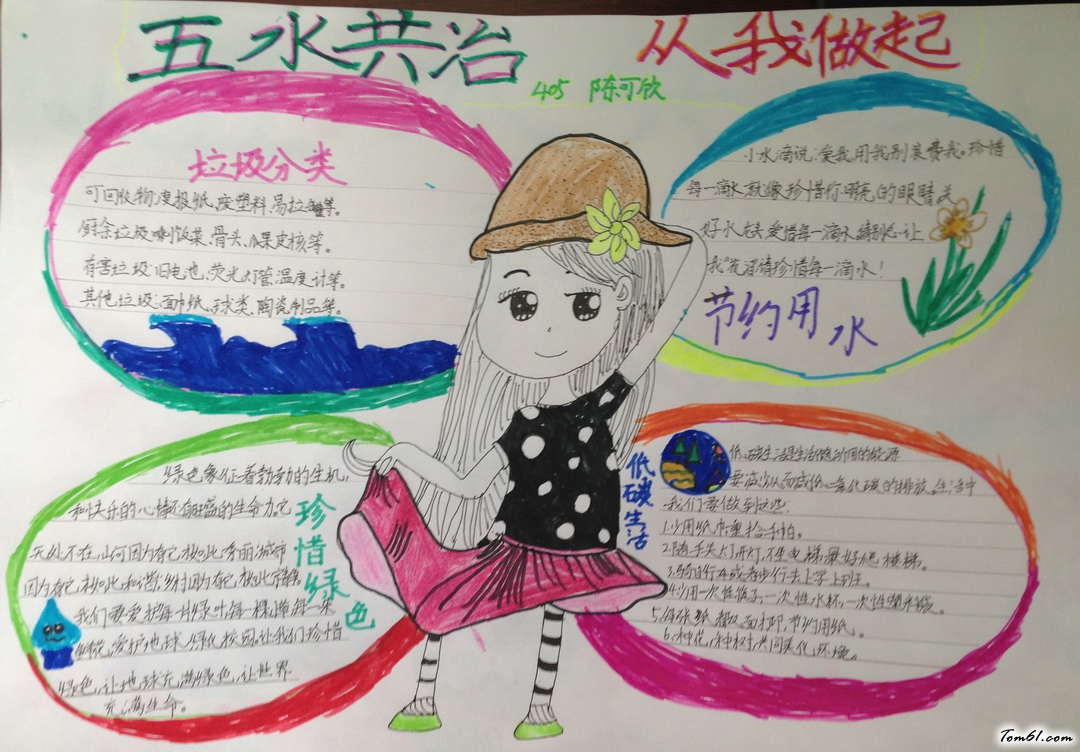 五水共治 从我做起
405 陈可欣
垃圾分类
可回收物:废报纸,废塑料,易拉罐等。
厨余垃圾:剩饭菜、骨头、瓜果皮核等。
有害垃圾:旧电池,荧光灯管,温度计等。
其他垃圾:面巾纸,球类、陶瓷制品等。
小水滴说:爱我用我别浪费我。珍惜
每一滴水就像珍惜你明亮的眼睛,关
好水龙头爱惜每一滴水,特别让
我"请珍惜每一滴水!
节约用水
绿色象征着勃勃的生机,
和快乐的心情还有旺盛的生命力。它
无处不在,山河因为有它,才如此秀丽,城市
因为有它,才如此和谐,乡村因为有它,才如此
我们要爱护每一片绿叶,每一棵,每一朵
爱护地球,绿化校园。让我们珍惜
绿色,让地球充满绿色,让世界
充满生命。
珍惜绿色
低碳生活
低碳生活是生活
要减少,从而减低二氧化碳的排放。生活中
我们要做到这些:
1.少用纸巾,重拾手帕。
2.随手关灯开灯,不坐电梯最好爬楼梯。
3.骑自行车或者步行去上学上班。
4.少用一次性筷子,一次性水杯,一次性塑料袋。
5.每张纸都双面打印,节约用纸。
6.种花,种树,共同美化环境。
Tom61.com